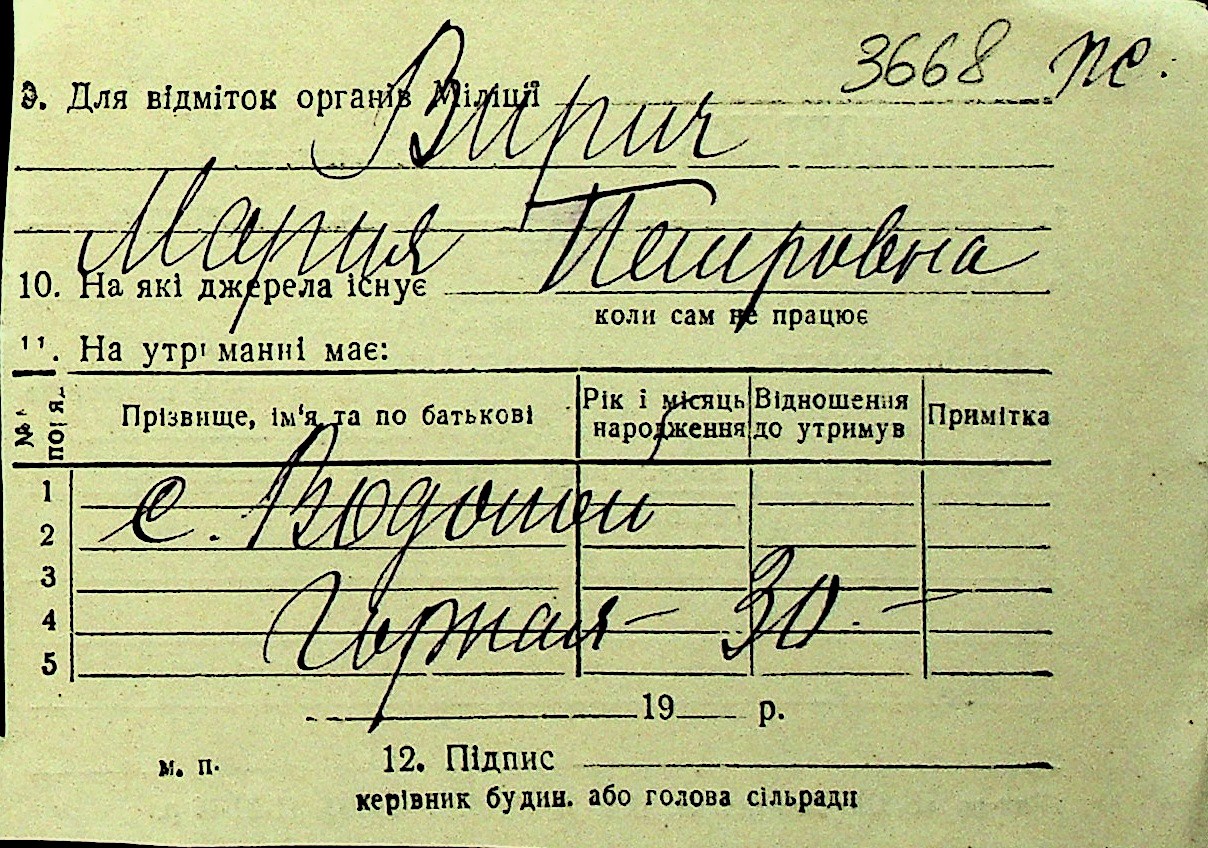 3668 пс.
9. Для відміток органів Міліції
Вирич
Мария Петровна
10. На які джерела існує
коли сам не працює
11. На утриманні має:
№№ по п.
Прізвище, ім‘я та по батькові
Рік і місяць народження
Відношення до утримув
Примітка
1
с. Водопой
2
3
Горная – 30. –
4
5
19 р.
м. п.
12. Підпис
керівник будин. або голова сільради